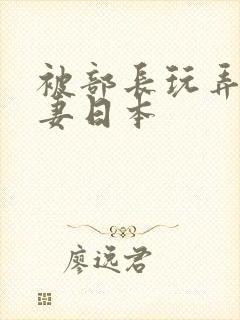 被部長玩弄
妻日本
廖远君